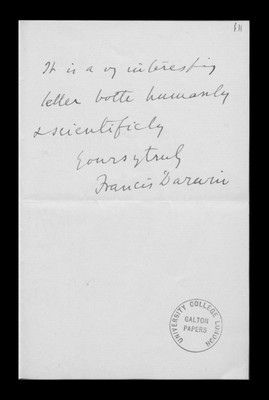 F11
It is a vy interesting
letter both humanly
& scientificly
Yours vy truly
Francis Darwin
UNIVERSITY COLLEGE LONDON
GALTON
PAPERS